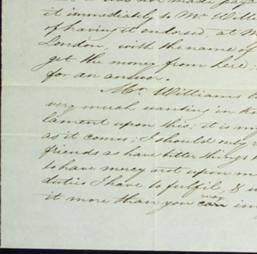 it immediately to Mr Will
of having it endorsed, at M
London, with the name of
get the money from here
for an answer.
Mr. Williams
very much wanting in
lament upon this; it is
as it comes; I should only
friends as have better things
to have mercy not upon
duties I have to fulfil, &
it more than you can may im